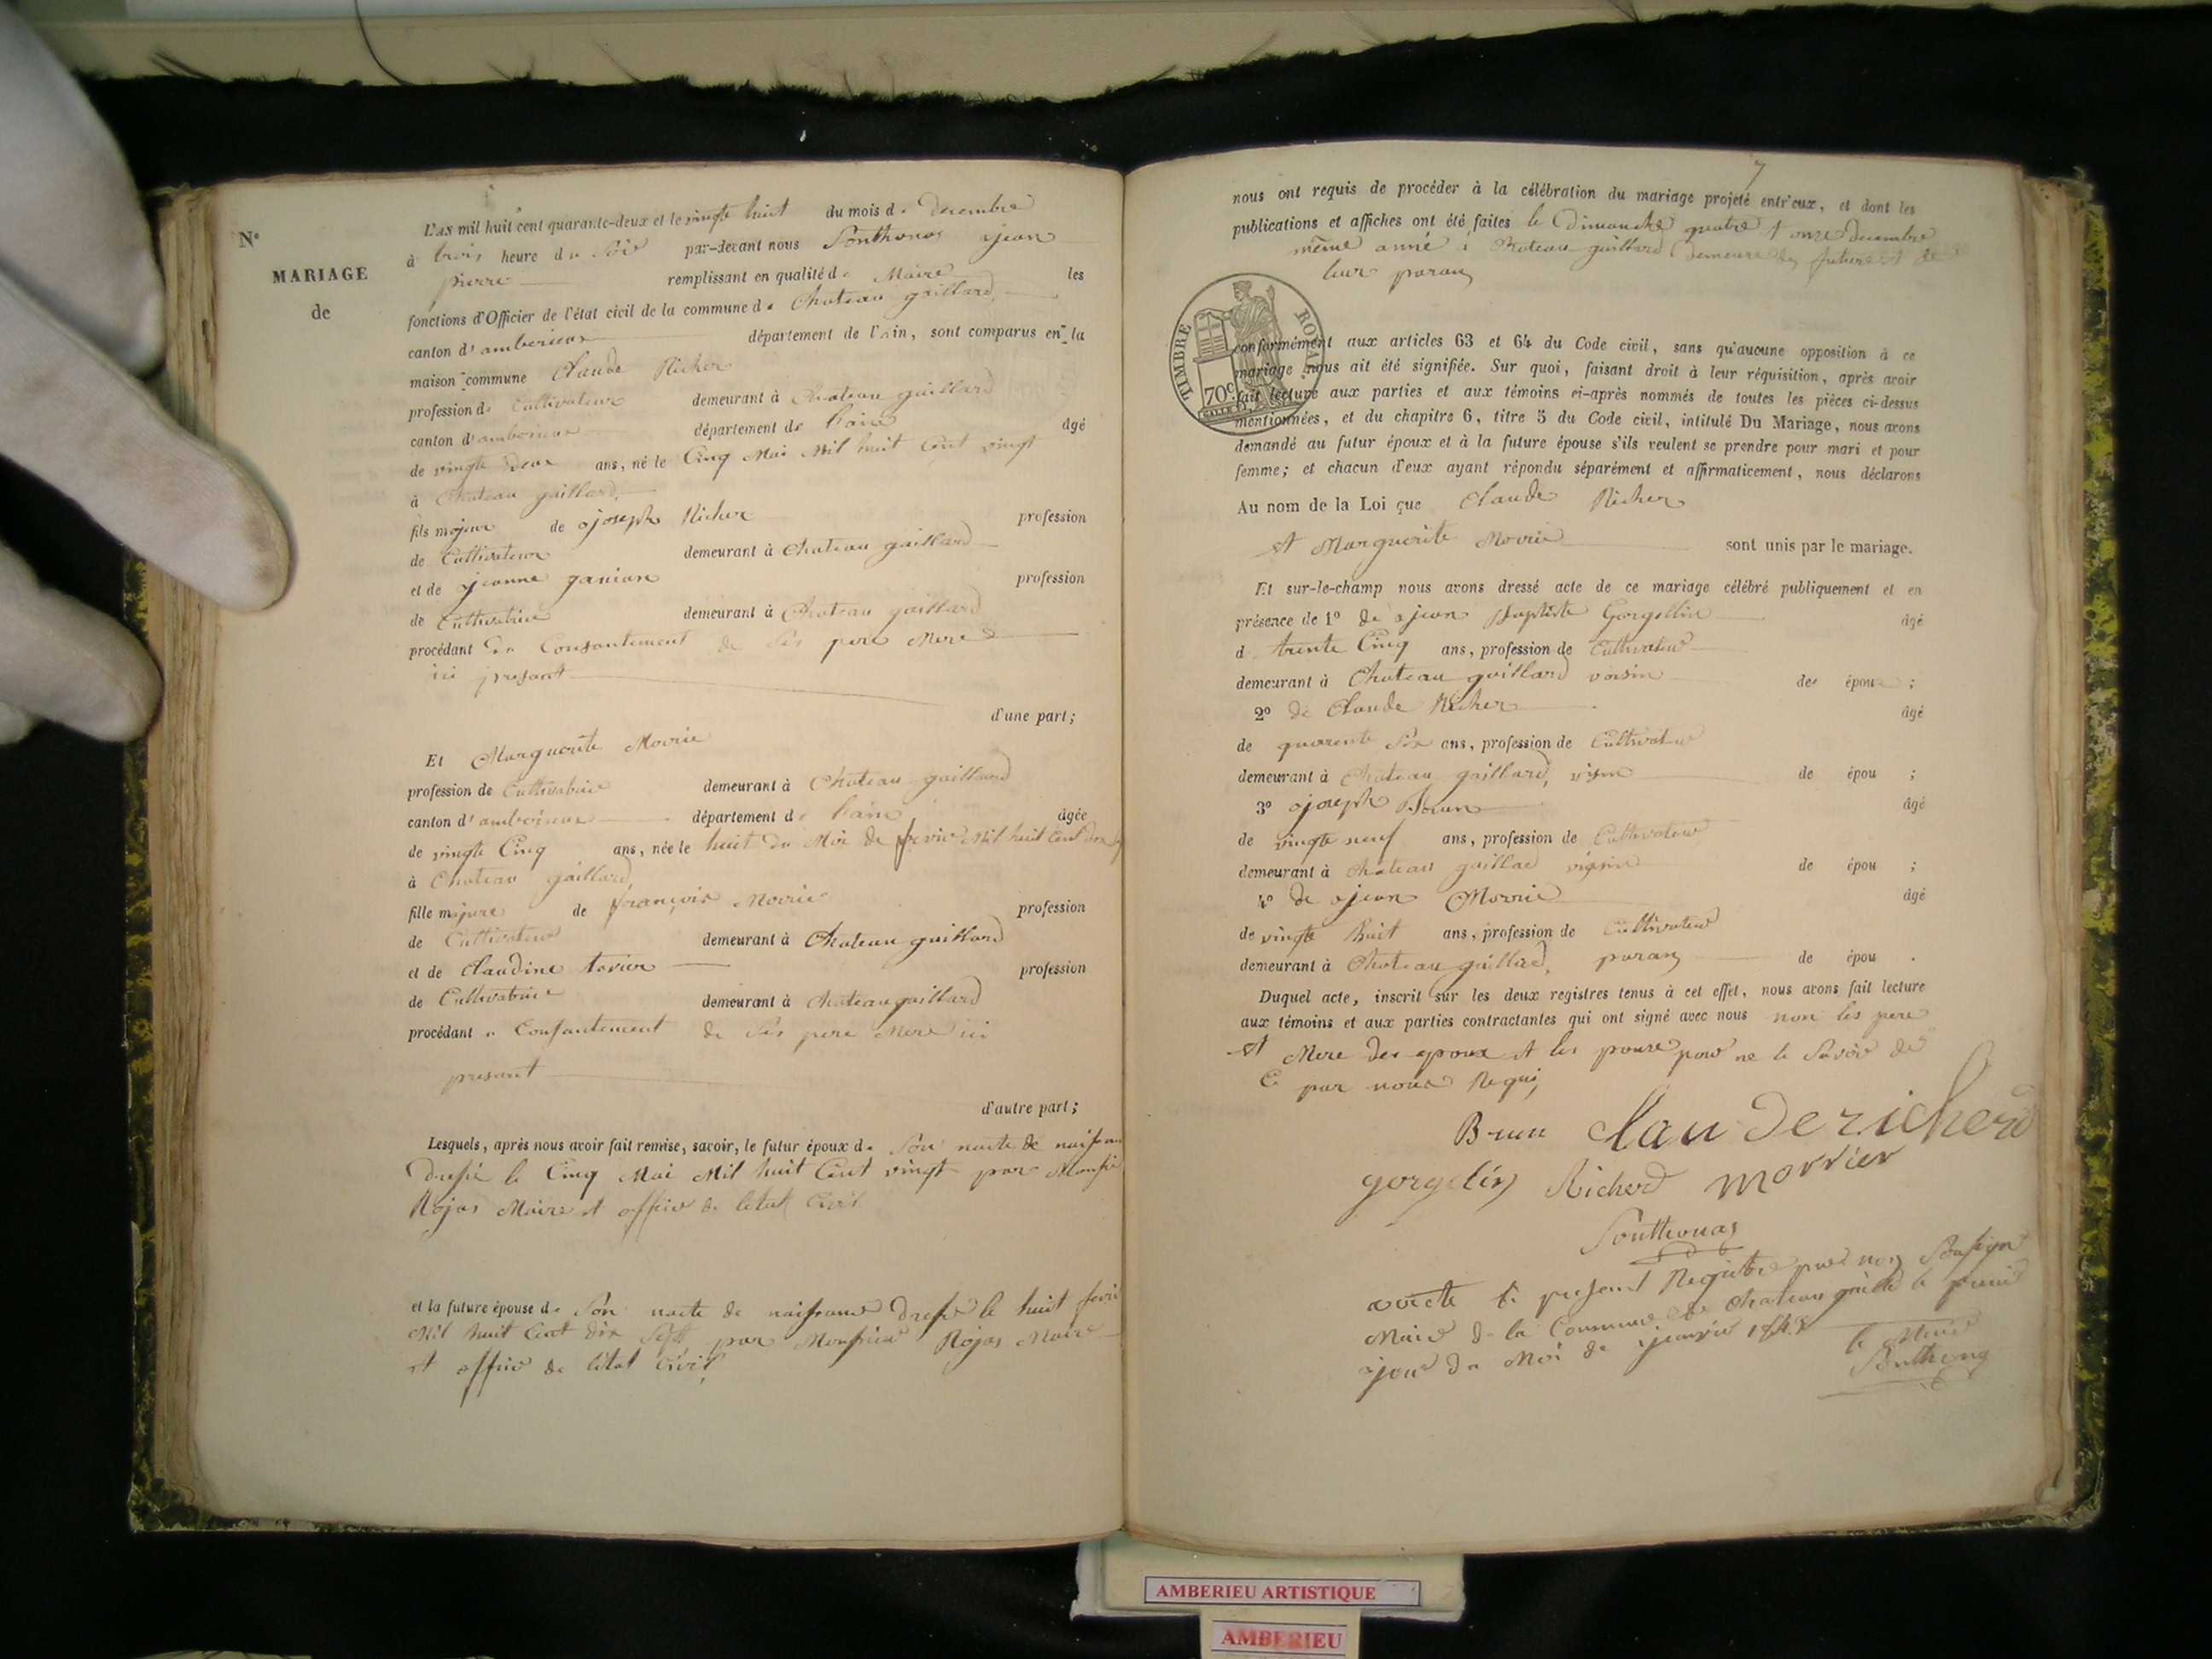 N°
MARIAGE
de
L'AN mil huit cent quarante-deux et le vingte huit du mois de decembre
à trois heure du Soir par-devant nous Ponthonas jean
pierre remplissant en qualité de Maire les
fonctions d'Officier de l'état civil de la commune de Chateau gaillard
canton d'amberieux département de l'ain, sont comparus en la
maison commune Claude Richer
profession de Cultivateur demeurant à Chateau gaillard
canton d'amberieux département de l'ain âgé
de vingte deux ans, né le Cinq Mai Mil huit Cent vingt
à Chateau gaillard
fils majeur de joseph Richer profession
de Cultivateur demeurant à Chateau gaillard
et de jeanne profession
de Cultivatrice demeurant à Chateau gaillard
procédant du Consantement de Ses pere Mere
ici presant
d'une part;
Et Marguerite Movrie
profession de Cultivatrice demeurant à Chateau gaillard
canton d'amberieux département de l'ain âgée
de vingte Cinq ans, née le huit du Moi de fevrie Mil huit Cent
à Chateau gaillard
fille majure de françois Movrie profession
de Cultivateur demeurant à Chateau gaillard
et de Claudine profession
de Cultivatrice demeurant à Chateau gaillard
procédant Consantement de Ses pere Mere ici
presant
d'autre part;
Lesquels, après nous avoir fait remise, savoir, le futur époux de Son nacte de
Dressé le Cinq Mai Mil huit Cent vingt par
Rojas Maire et officie de letat Civil
et la future épouse de Son nacte de naissance Dressé le huit
Mil huit Cent dix Sept par Monsieur Rojas Maire
et officie de létat Civil
7
nous ont requis de procéder à la célébration du mariage projeté entr'eux, et dont les
publications et affiches ont été faites le Dimanche quatre et onze decembre
même anné à Chateau gaillard Demeure des futures et de
leur parans
TIMBRE ROYAL
70c
conformément aux articles 63 et 64 du Code civil, sans qu'aucune opposition à ce
mariage nous ait été signifiée. Sur quoi, faisant droit à leur réquisition, après avoir
fait lecture aux parties et aux témoins ci-après nommés de toutes les pièces ci-dessus
mentionnées, et du chapitre 6, titre 5 du Code civil, intitulé Du Mariage, nous avons
demandé au futur époux et à la future épouse s'ils veulent se prendre pour mari et pour
femme; et chacun d'eux ayant répondu séparément et affirmativement, nous déclarons
Au nom de la Loi que Claude Richer
et Marguerite Movrie sont unis par le mariage.
Et sur-le-champ nous avons dressé acte de ce mariage célébré publiquement et en
présence de 1° de jean Baptiste Gorgellin âgé
d trente Cinq ans, profession de Cultivateur
demeurant à Chateau gaillard voisin des époux ;
2° de Claude Richer âgé
de quarente Six ans, profession de Cultivateur
demeurant à Chateau gaillard, de épou ;
3° joseph Brun âgé
de vingte neuf ans, profession de Cultivateur
demeurant à Chateau de épou ;
4° de jean Movrie âgé
de vingte huit ans, profession de Cultivateur
demeurant à Chateau parans de épou .
Duquel acte, inscrit sur les deux registres tenus à cet effet, nous avons fait lecture
aux témoins et aux parties contractantes qui ont signé avec nous non les pere
et Mere des epoux et les pouse pour ne le Savoir de
Ce par nous Requi
Brun Claude richerd
gorgelin Richerd morrier
Ponthonas
le present Registre par nous
Maire de la Commune de Chateau
jour du Moi de janvie 1843
le Maire
Ponthonas
AMBERIEU ARTISTIQUE
AMBERIEU